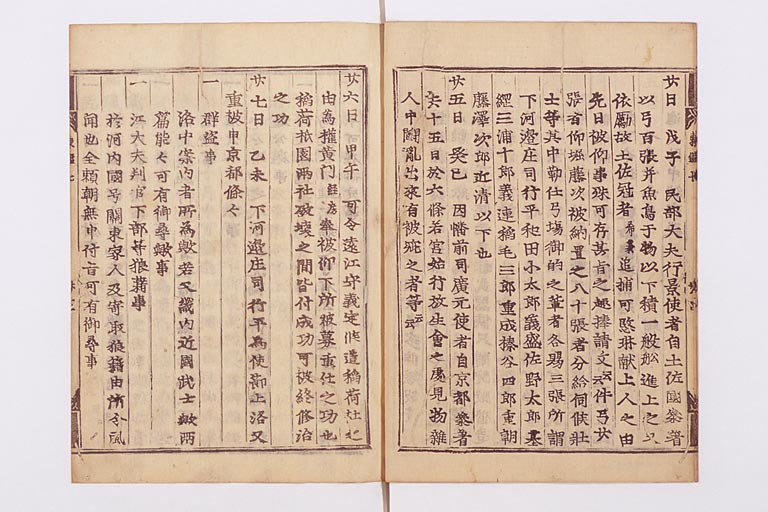 廿日 戊子 民部大夫行景使者自土佐國參著
以弓百張并魚鳥干物以下積一艘舩進上之又
依勵故土佐冠者希義追捕可愍琳猷上人之由
先日被仰事殊可存其旨之趣捧請文云云件弓廿
張者仰堀藤次被納置之八十張者分給伺候壯
士等其中勤仕弓場御的之輩者各賜三張所謂
下河邊庄司行平和田小太郎義盛佐野太郎基
經三浦十郎義連稲毛三郎重成榛谷四郎重朝
藤澤次郎近清以下也
廿五日 癸巳 因幡前司廣元使者自京都參著
去十五日於六條若宮始行放生會之處見物雜
人中鬪亂出來有被疵之者等云云
廿六日 甲午 可令遠江守義定修造稲荷社之
由為權黃門奉被仰下所被募重任之功也
稲荷祇園兩社破壞之間皆付成功可被終修治
之功
廿七日 乙未 下河邊庄司行平為使節上洛又
重被申京都條々
一 群盜事
洛中案內者所為歟若又畿內近國武士歟兩
篇能々可有御尋歟事
一 江大夫判官下部等狼藉事
於河內國号關東家人及寄取狼藉由所令風
聞也全頼朝無中付旨可有御尋事